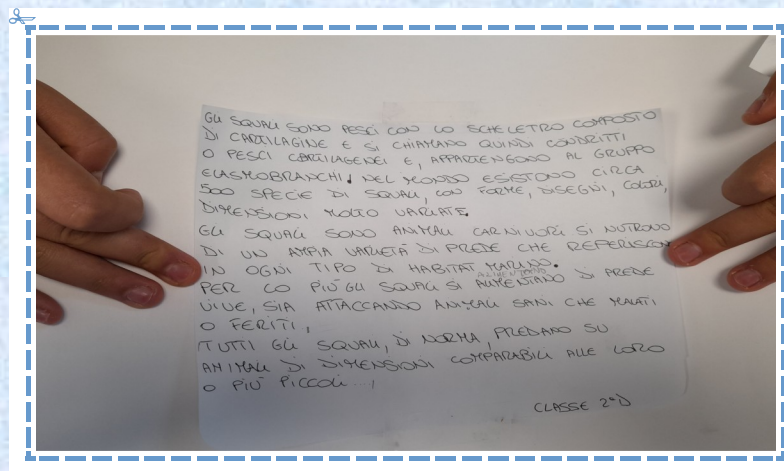 GLI SQUALI SONO PESCI CON LO SCHELETRO COMPOSTO
DI CARTILAGINE E SI CHIAMANO QUINDI CONDRITTI
O PESCI CARTILAGENEI E, APPARTENGONO AL GRUPPO
ELASMOBRANCHI. NEL MONDO ESISTONO CIRCA
500 SPECIE DI SQUALI, CON FORME, DISEGNI, COLORI,
DIMENSIONI MOLTO VARIATE.
GLI SQUALI SONO ANIMALI CARNIVORI SI NUTRONO
DI UN AMPIA VARIETÀ DI PREDE CHE REPERISCONO
IN OGNI TIPO DI HABITAT MARINO.
ALIMENTANO
PER LO PIÙ GLI SQUALI SI ALIMENTANO DI PREDE
VIVE, SIA ATTACCANDO ANIMALI SANI CHE MALATI
O FERITI,
TUTTI GLI SQUALI, DI NORMA, PREDANO SU
ANIMALI DI DIMENSIONI COMPARABILI ALLE LORO
O PIÙ PICCOLI...,
CLASSE 2°D